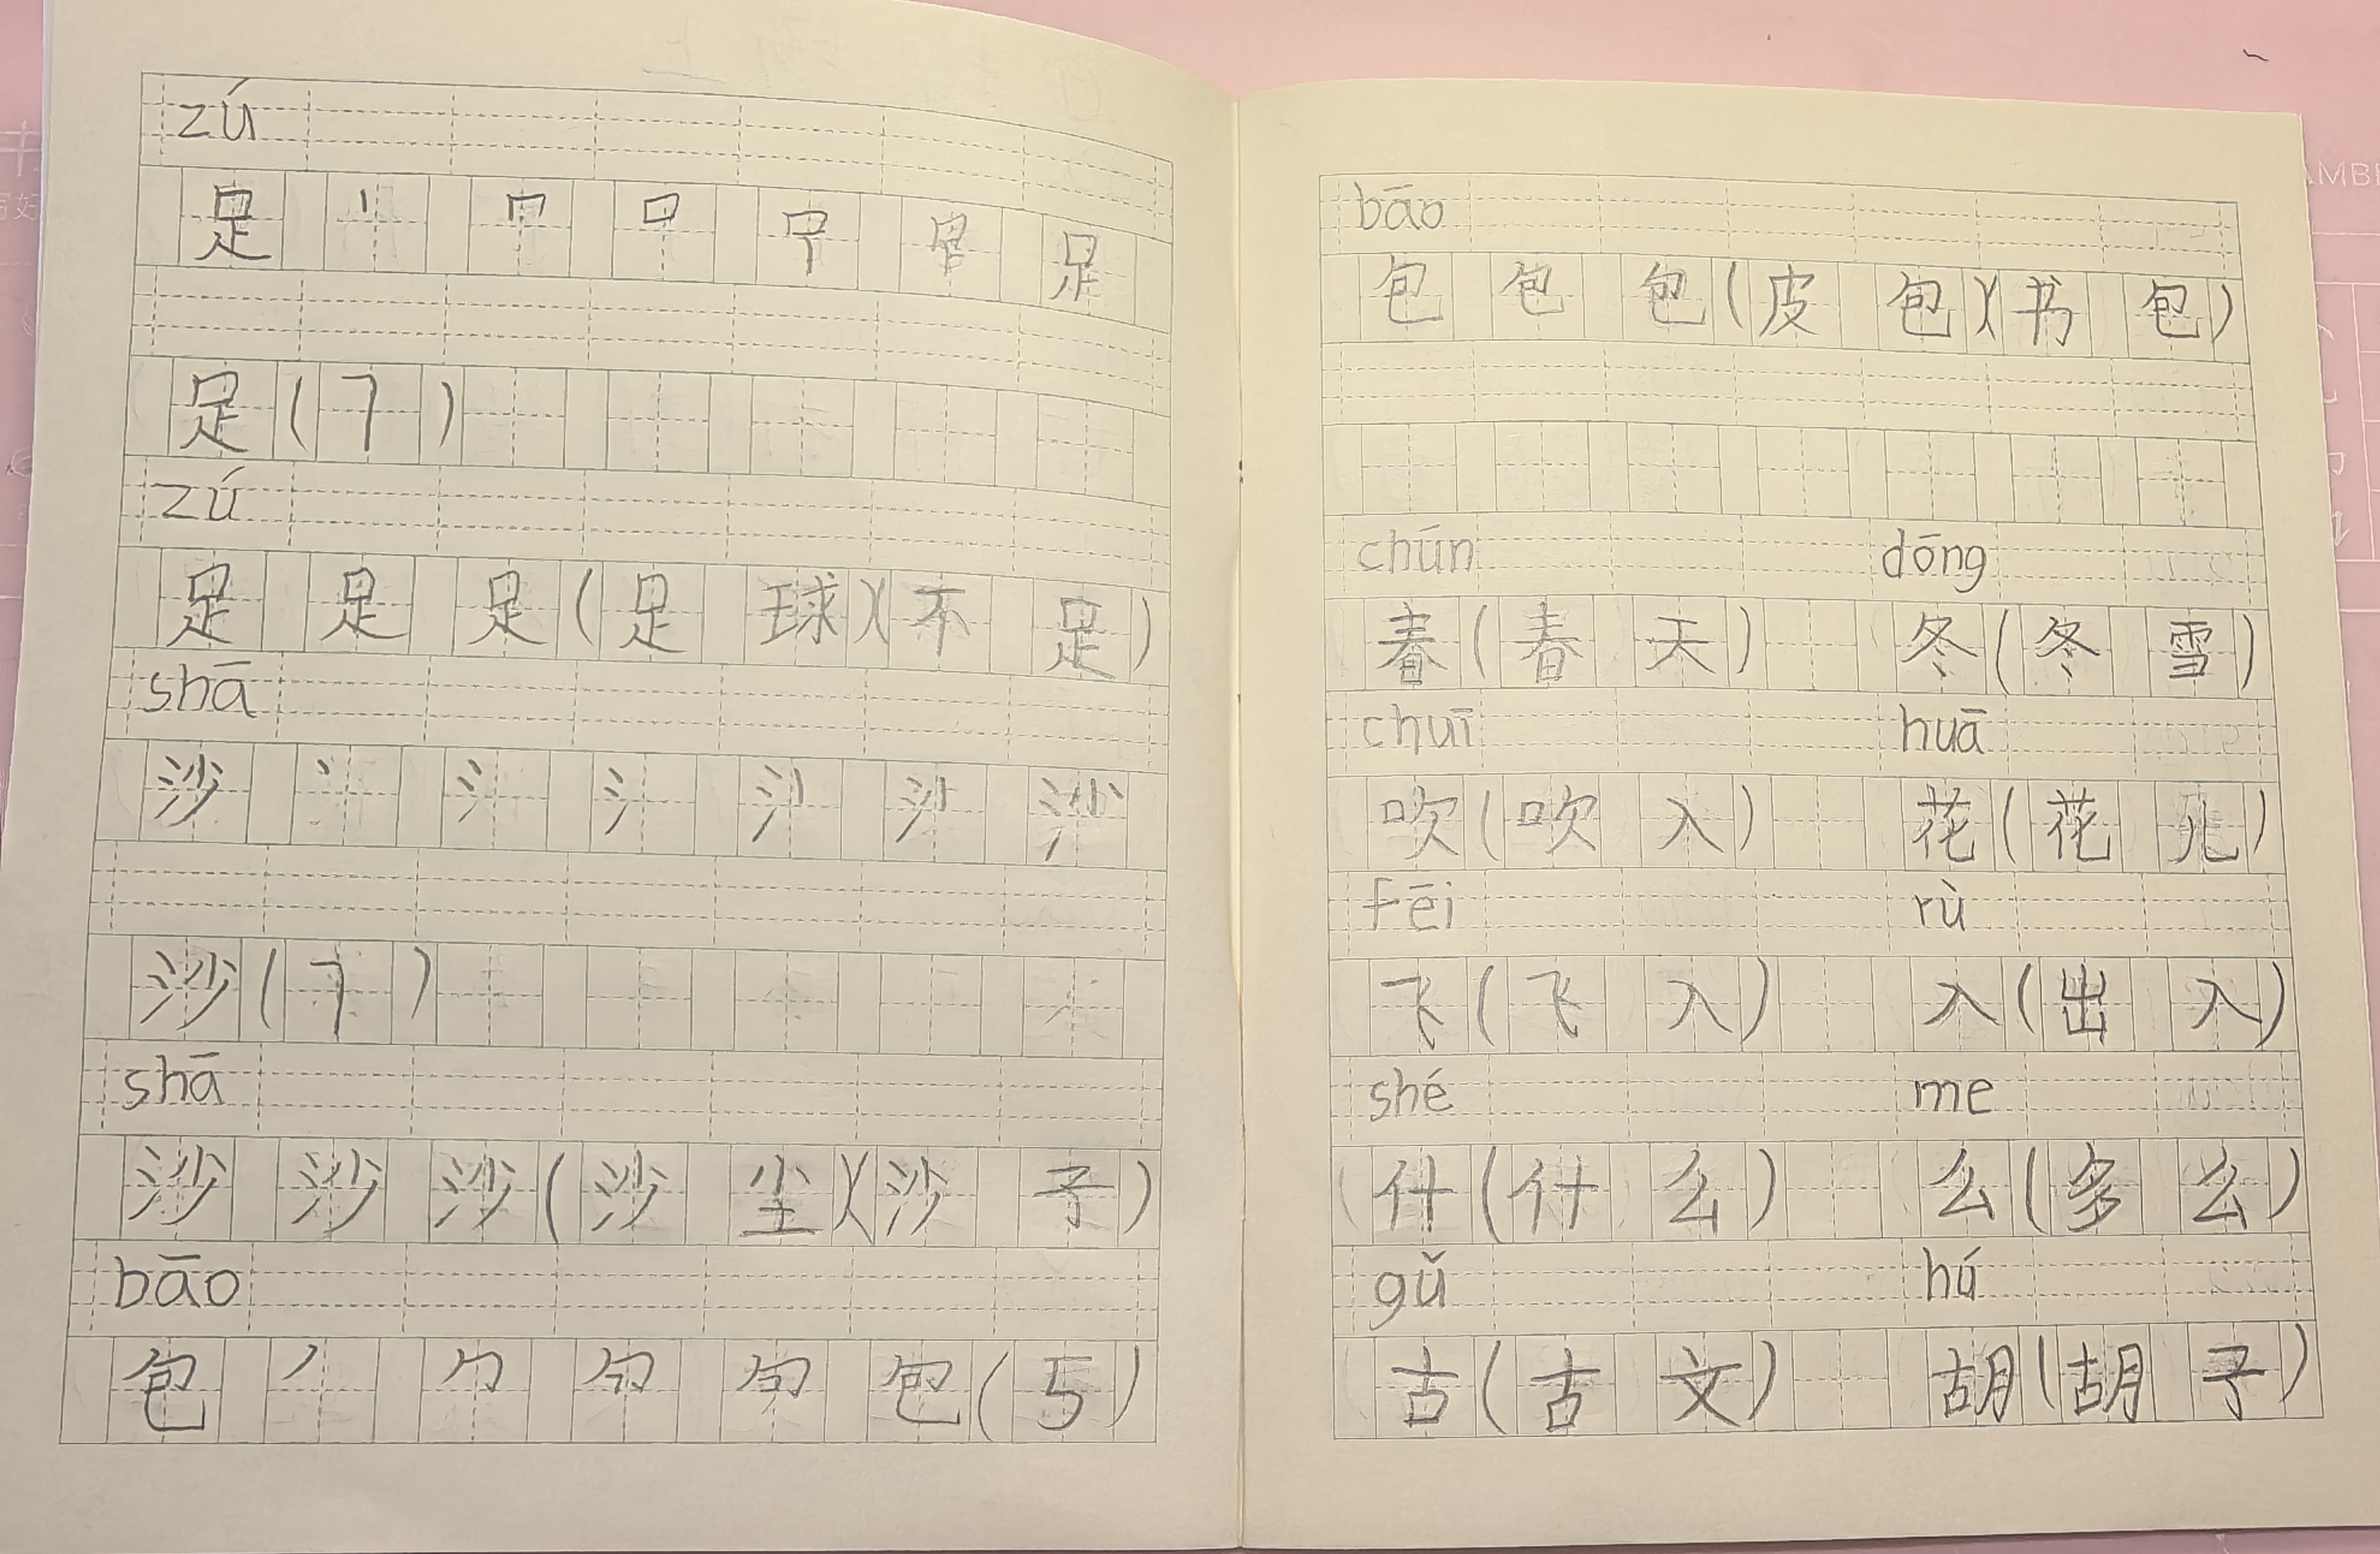 zú
足 丨 𠃍 口 足
足(7)
zú
足 足 足(足 球)(不 足)
shā
沙 丶 冫 氵 沙 沙
沙(7)
shā
沙 沙 沙(沙 尘)(沙 子)
bāo
包 丿 勹 勹 包(5)
bāo
包 包 包(皮 包)(书 包)
chún dōng
春(春 天) 冬(冬 雪)
chuī huā
吹(吹 入) 花(花 儿)
fēi rù
飞(飞 入) 入(出 入)
shé me
什(什 么) 么(多 么)
gǔ hú
古(古 文) 胡(胡 子)